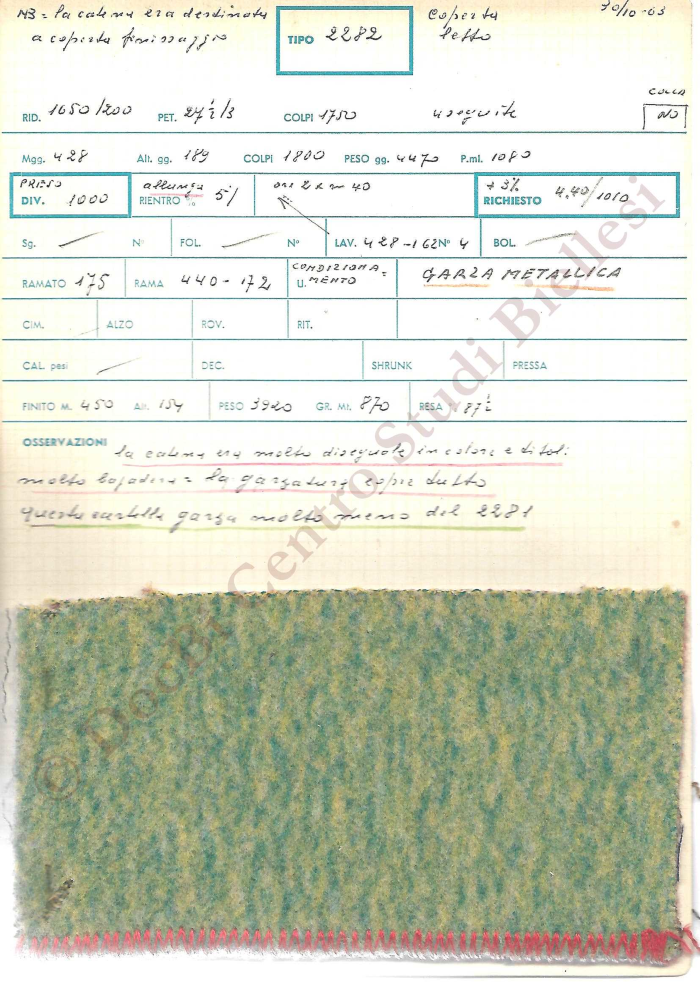 NB = la catena era destinata
a coperta finissaggio
TIPO 2282
coperta
letto
30/10-63
RID. 1650/200 PET. 27 ½/3 COLPI 1750 useguite
COLLA
NO
Mgg. 428 Alt. gg. 189 COLPI 1800 PESO gg. 4470 P.ml. 1080
PRESO
DIV. 1000
allunga
RIENTRO % 5%
ore 2 x m 40
+ 3%
RICHIESTO 4,40/1010
Sg. Nº FOL. Nº LAV. 428-162 Nº 4 BOL.
RAMATO 175 RAMA 440-172
CONDIZIONA=
U. MENTO
GARZA METALLICA
CIM. ALZO ROV. RIT.
CAL. pesi DEC. SHRUNK PRESSA
FINITO M. 450 Alt. 154 PESO 3920 GR. Mt. 870 RESA 87 ½
OSSERVAZIONI la catena era molto diseguale in colore e titoli
molto bajadera = la garzatura copre tutto
questa cartella garza molto meno del 2281
© DocBi Centro Studi Biellesi